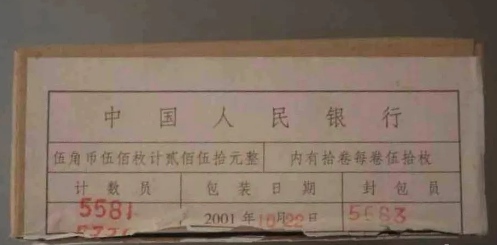 中国人民银行
伍角币伍佰枚计贰佰伍拾元整 内有拾卷每卷伍拾枚
计数员 包装日期 封包员
5581 2001年10月22日 5583